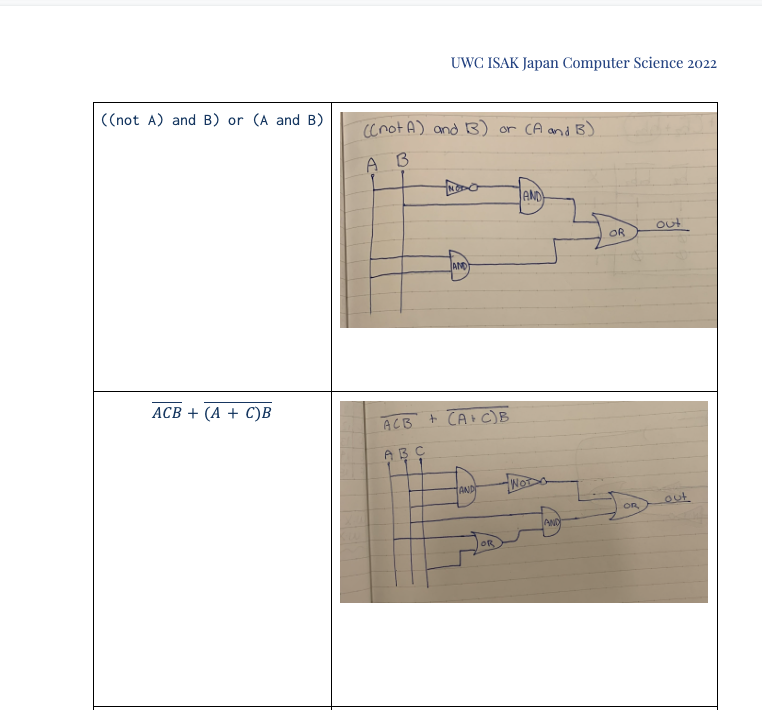 UWC ISAK Japan Computer Science 2022
((not A) and B) or (A and B)
((not A) and B) or (A and B)
A B
NOT
AND
OR
out
AND
\overline{ACB} + \overline{(A + C)B}
\overline{ACB} + \overline{(A+C)B}
A B C
AND
NOT
OR
out
AND
OR